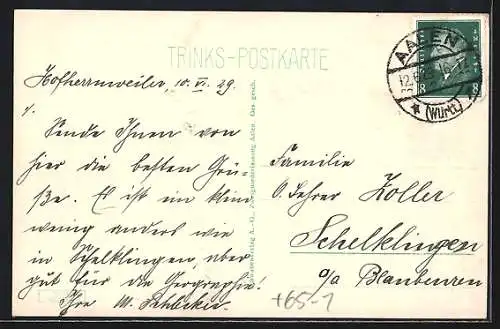 TRINKS-POSTKARTE
Hofherrnweiler, 10. VI. 29.
Sende Ihnen von
hier die besten Grü-
ße. Es ist ein klein
wenig anders wie
in Schelklingen, aber
gut für die Geographie!
Ihre M. Schlecker.
Familie
O. Lehrer Zoller
Schelklingen
o/a Blaubeuren
AALEN
(Württ)
8 8
+65-1